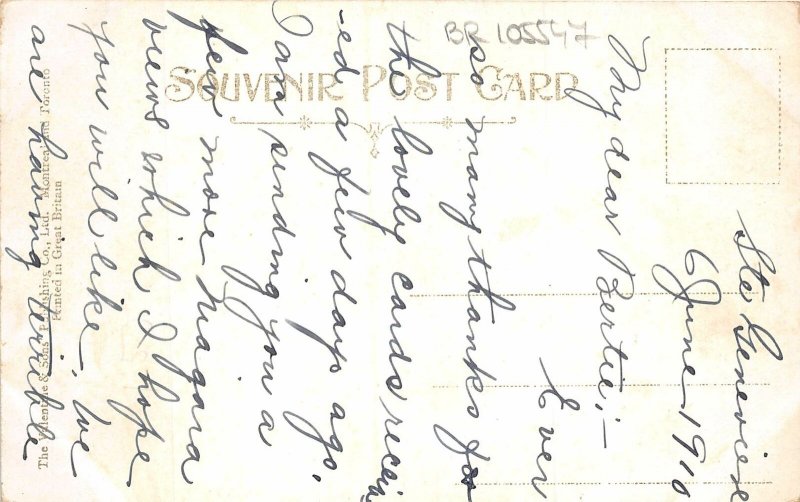 BR 105547
SOUVENIR POST CARD
Ste Genevieve
6 June 1910
My dear Bertie:—
Ever
so many thanks for
the lovely cards receiv
-ed a few days ago.
I am sending you a
few more Niagara
views which I hope
you will like. We
are having terrible
The Valentine & Sons' Publishing Co., Ltd. Montreal and Toronto
Printed in Great Britain